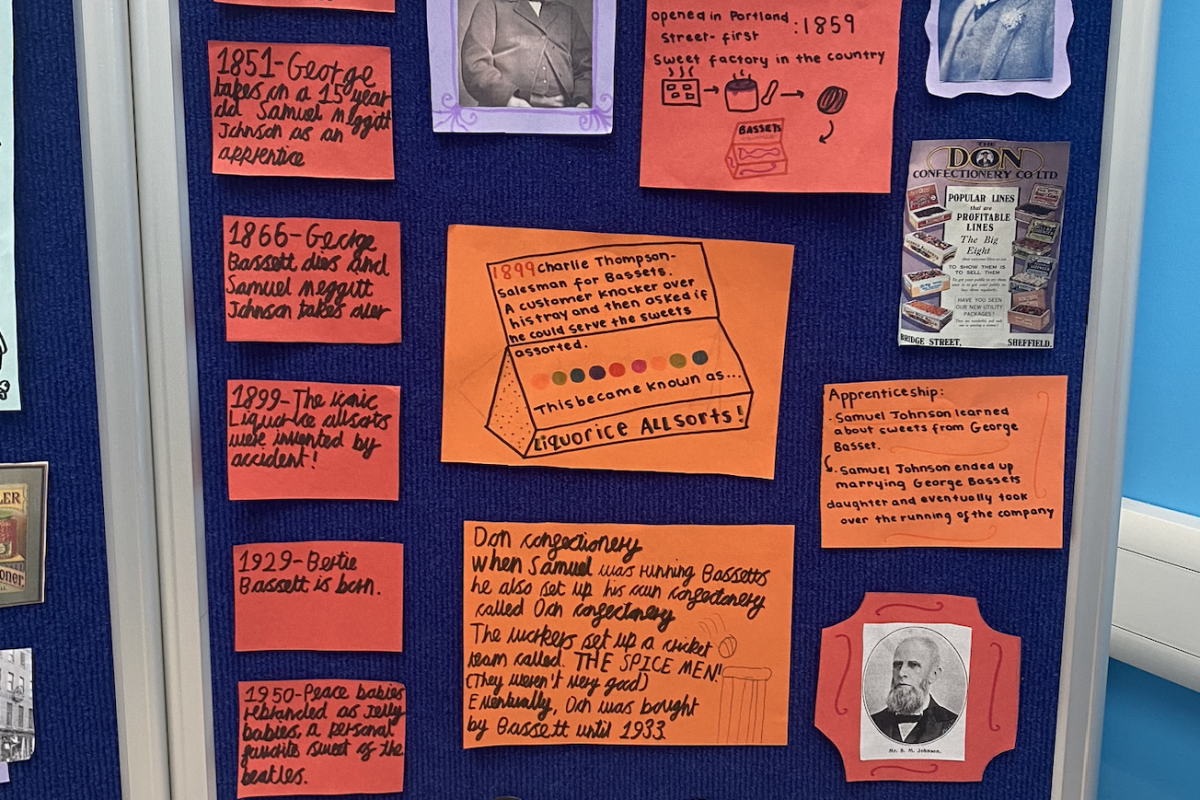 1851-George
takes on a 15 year
old Samuel Meggitt
Johnson as an
apprentice
1866-George
Bassett dies and
Samuel Meggitt
Johnson takes over
1899-The iconic
Liquorice allsorts
were invented by
accident!
1929-Bertie
Bassett is born.
1950-Peace babies
rebranded as Jelly
babies, a personal
favourite sweet of the
beatles.
opened in Portland :1859
Street-first
Sweet factory in the country
BASSETS
1899 Charlie Thompson-
Salesman for Bassets.
A customer knocker over
his tray and then asked if
he could serve the sweets
assorted.
This became known as...
LIQUORICE ALLSORTS!
Don confectionery
When Samuel was running Bassetts
he also set up his own confectionery
called Don confectionery
The workers set up a cricket
team called. THE SPICE MEN!
(They weren't very good)
Eventually, Don was bought
by Bassett until 1933.
THE
DON
CONFECTIONERY CO LTD
POPULAR LINES
that are
PROFITABLE
LINES
The Big
Eight
TO SHOW THEM IS
TO SELL THEM
HAVE YOU SEEN
OUR NEW UTILITY
PACKAGES?
BRIDGE STREET, SHEFFIELD.
Apprenticeship:
. Samuel Johnson learned
about sweets from George
Basset.
. Samuel Johnson ended up
marrying George Bassets
daughter and eventually took
over the running of the company
Mr. S. M. Johnson.
LER
oner.